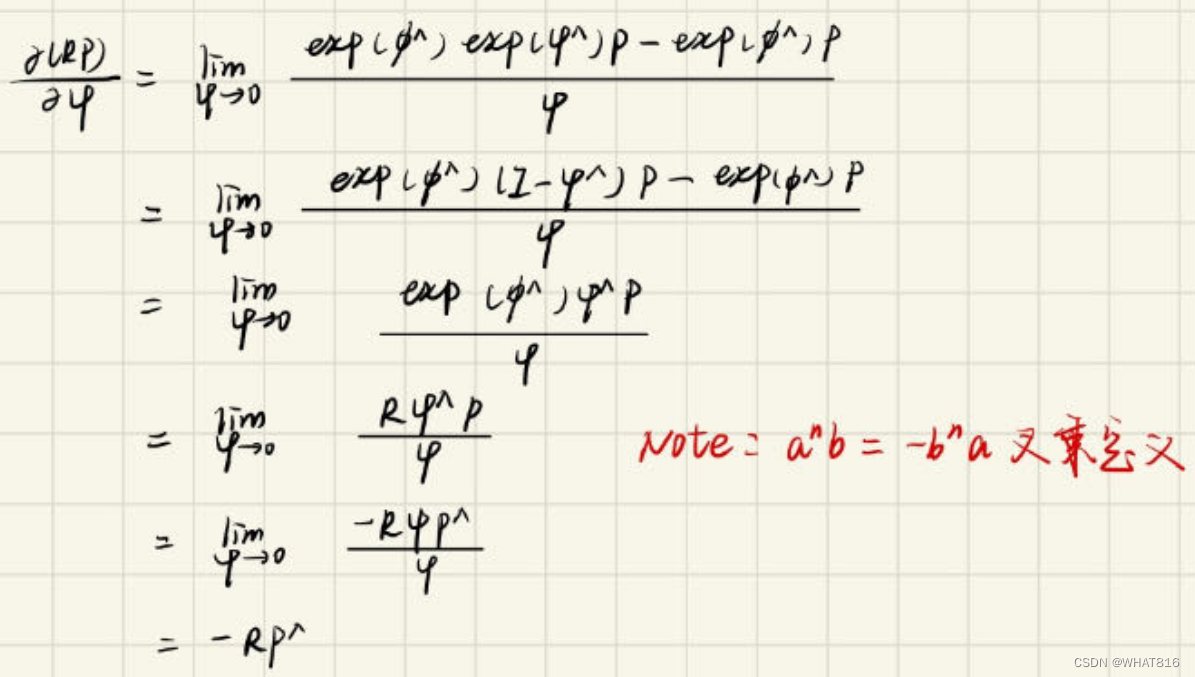 ∂(RP)/∂φ = lim φ→0 (exp(ϕ^) exp(φ^)P - exp(ϕ^)P)/φ
= lim φ→0 (exp(ϕ^)(I-φ^)P - exp(ϕ^)P)/φ
= lim φ→0 (exp(ϕ^)φ^P)/φ
= lim φ→0 (Rφ^P)/φ Note: a^b = -b^a 叉乘定义
= lim φ→0 (-RφP^)/φ
= -RP^
CSDN @WHAT816